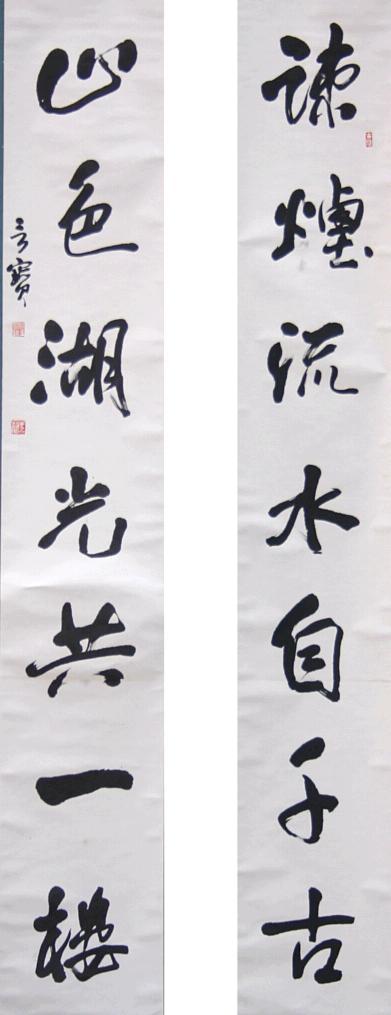 疎煙流水自千古
山色湖光共一樓
寶